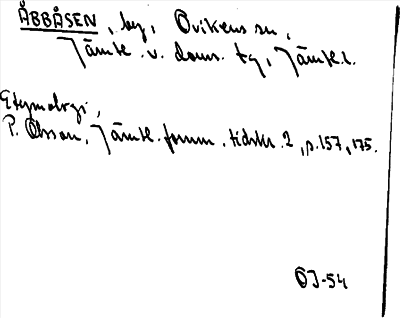 ÅBBÅSEN, by, Ovikens sn,
Jämtl. v. doms. tg, Jämtl. l.
Etymologi,
P. Olsson, Jämtl. fornm. tidskr. 2, p. 157, 175.
OJ-54